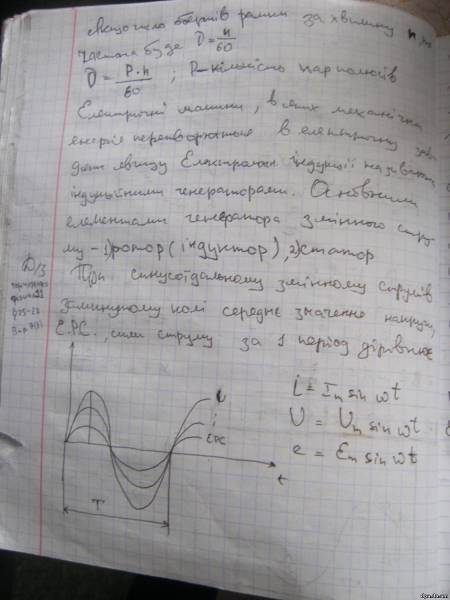 Якщо число обертів рамки за хвилину n, то
частота буде ν = n/60
ν = P·n/60 ; P – кількість пар полюсів
Електричні машини, в яких механічна
енергія перетворюється в електричну зав
дяки явищу Електромагн. індукції називають
індукційними генераторами. Основними
елементами генератора змінного стру
му – 1) ротор (індуктор), 2) статор
При синусоїдальному змінному струмі в
замкнутому колі середнє значення напруги,
Е.Р.С., сили струму за 1 період дорівнює
Д/З
U
i
ЕРС
t
T
i = Im sin ωt
U = Um sin ωt
e = Em sin ωt